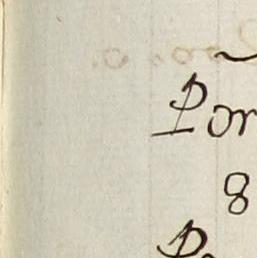 Por
8
P